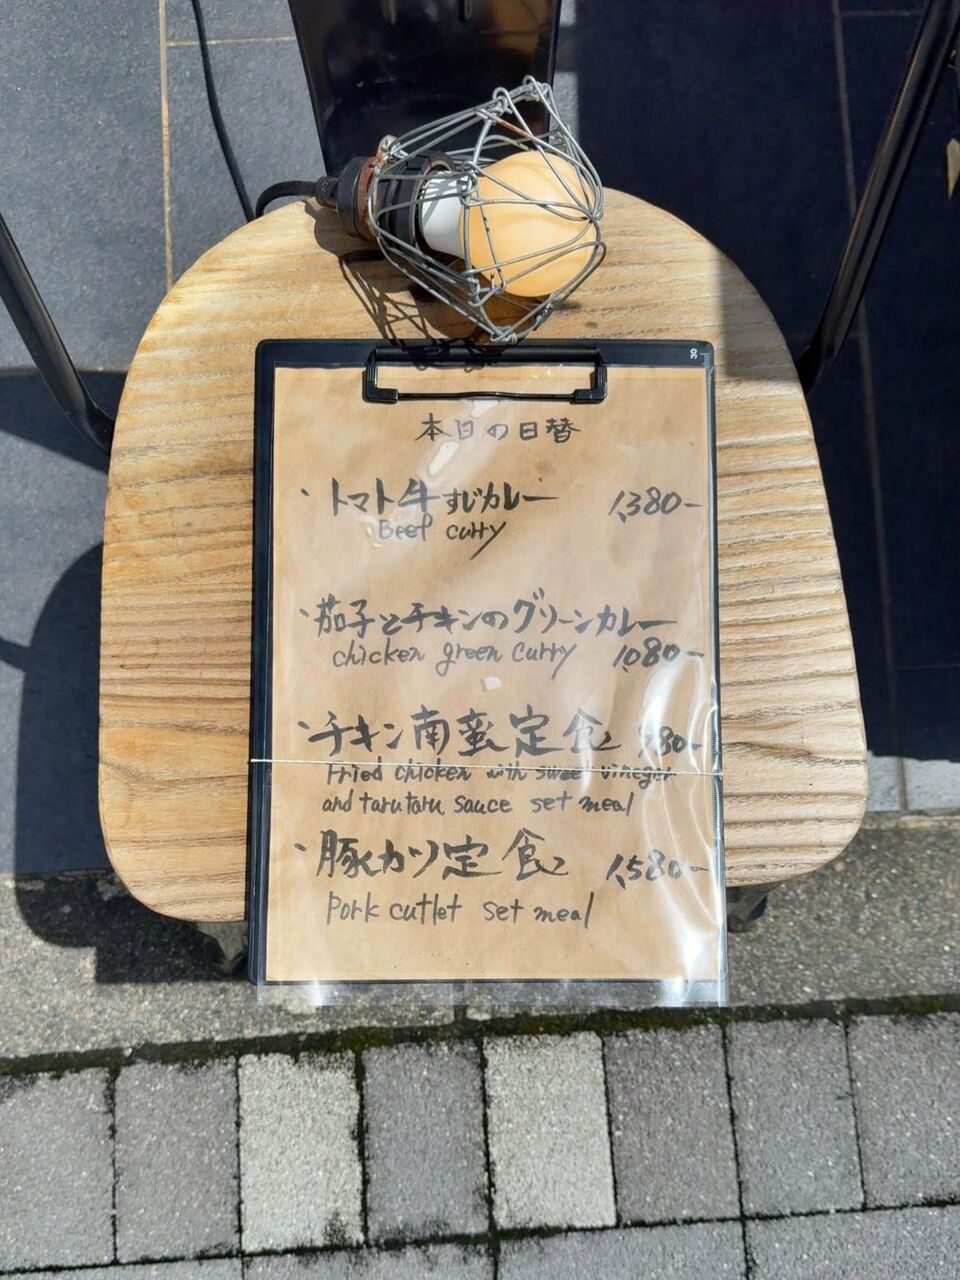 30
本日の日替
・トマト牛すじカレー 1,380-
Beef curry
・茄子とチキンのグリーンカレー
chicken green curry 1,080-
・チキン南蛮定食 80-
Fried chicken with sweet vineger
and tarutaru sauce set meal
・豚カツ定食 1,580-
Pork cutlet set meal